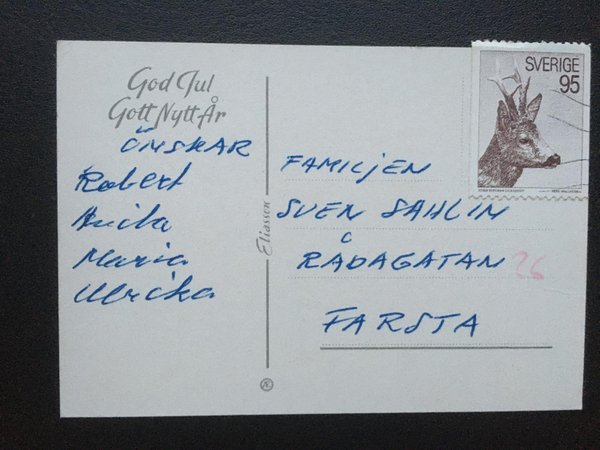 God Jul
Gott Nytt År
ÖNSKAR
Robert
Anita
Maria
Ulrika
Eliasson
FAMILJEN
SVEN SAHLIN
RÅDAGATAN 26
FARSTA
SVERIGE
95